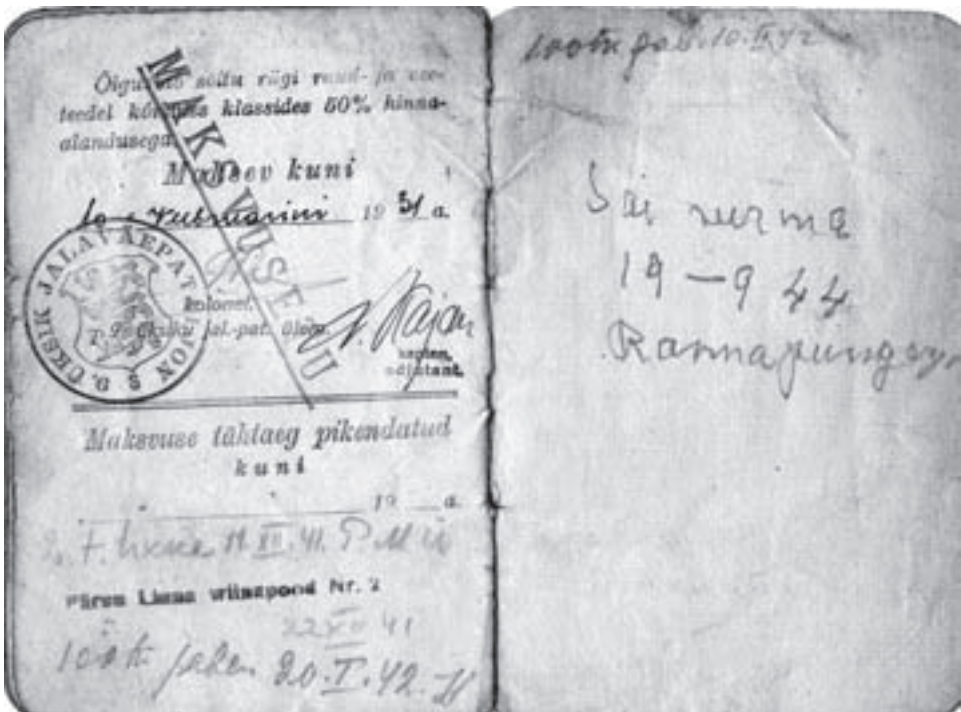 Õigustab sõitu riigi raud- ja vee-
teedel kõikides klassides 50% hinna-
alandusega
MAKSVUSETU
Maksev kuni
10. veebruarini 1931 a.
ÜKSIK JALAVÄEPATALJON
kolonel.
jal.-pat. ülem.
kapten,
adjutant.
Maksvuse tähtaeg pikendatud
kuni
19 a.
11.XII.41.
Pärnu Linna viinapood Nr. 2
22 XII 41
20.I.42.
10.II 42
Sai surma
19 – 9 44
Rannapungerja